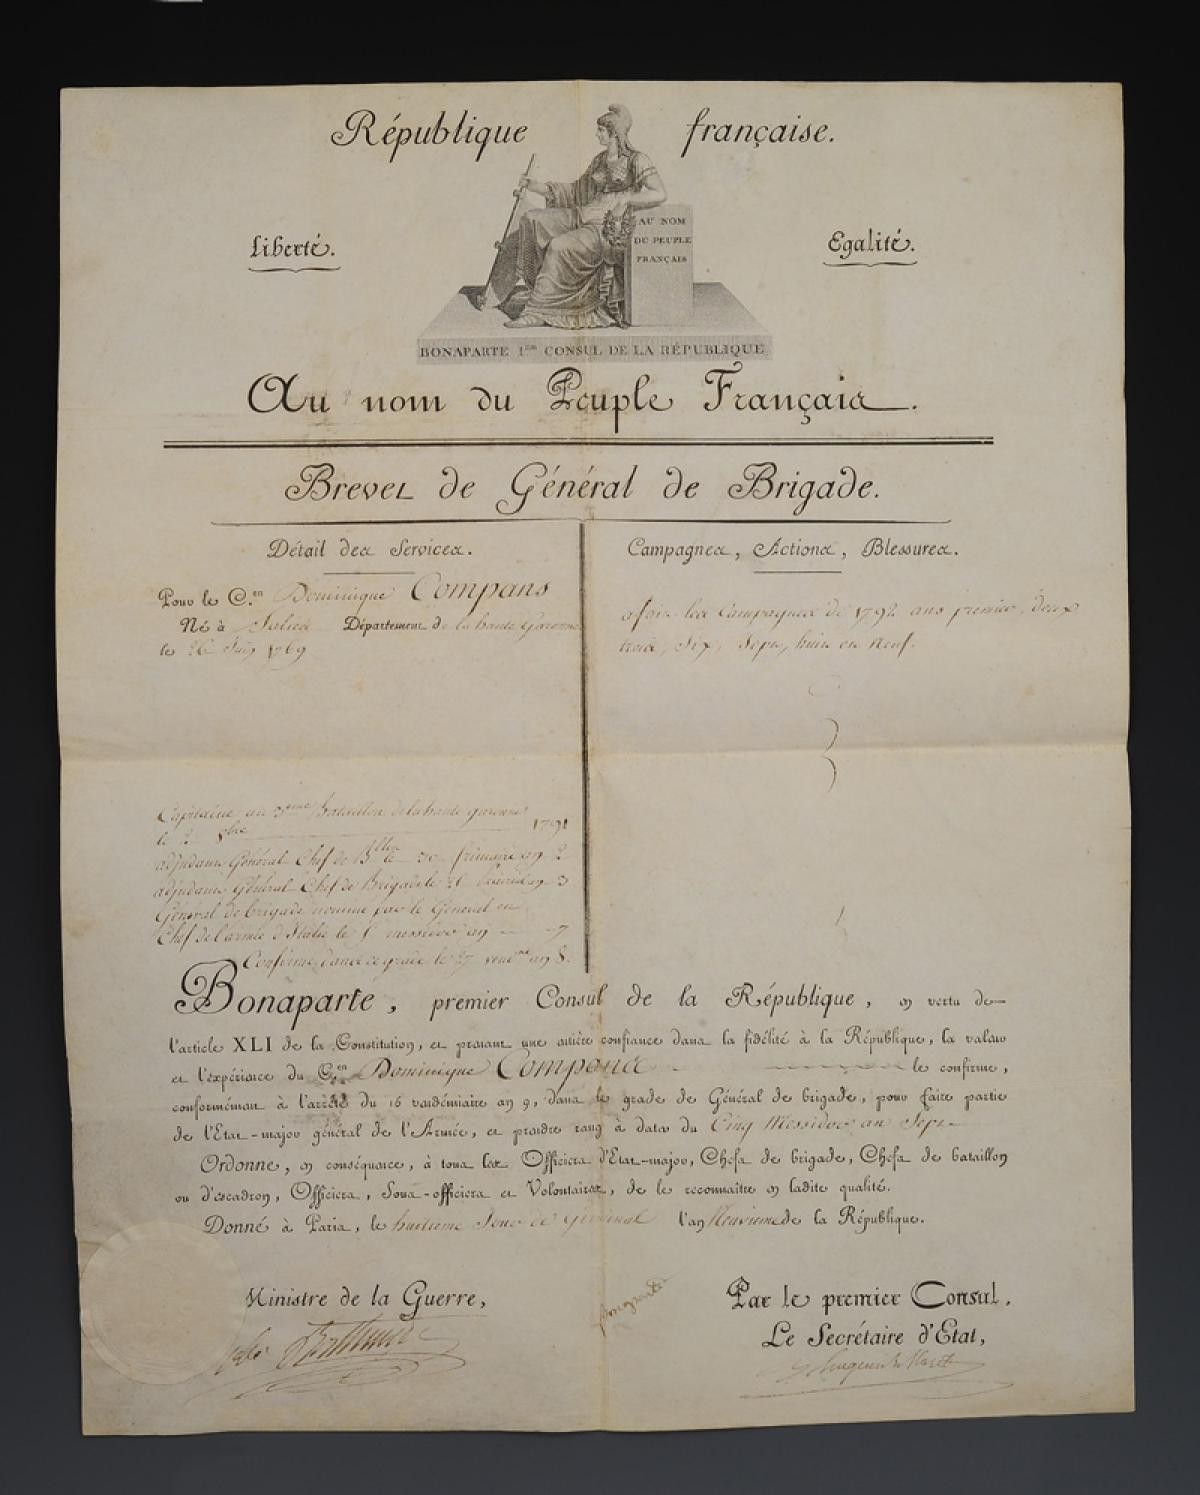 République française.
Liberté. Egalité.
AU NOM
DU PEUPLE
FRANÇAIS
BONAPARTE 1er CONSUL DE LA RÉPUBLIQUE
Au nom du Peuple Français.
Brevet de Général de Brigade.
Détail des Services.
Pour le C.en Dominique Compans
Né à Salies Département de la haute Garonne
le 26 Juin 1769
Capitaine au 3eme Bataillon de la haute garonne
le 8bre 1791
adjudant Général Chef de B.llon le 30 frimaire an 2
adjudant Général Chef de Brigade le 26 prairial an 3
Général de brigade nommé par le Général en
Chef de l'armée d'Italie le 5 messidor an 7
Confirmé dans ce grade le 27 vend.re an 8.
Campagnes, Actions, Blessures.
a fait les Campagnes de 1792 ans premier, deux
trois, Six, Sept, huit et Neuf.
Bonaparte, premier Consul de la République, en vertu de
l'article XLI de la Constitution, et prenant une entière confiance dans la fidélité à la République, la valeur
et l'expérience du C.en Dominique Compans le confirme,
conformément à l'arrêté du 16 vendémiaire an 9, dans le grade de Général de brigade, pour faire partie
de l'Etat-major général de l'Armée, et prendre rang à dater du Cinq Messidor an Sept
Ordonne, en conséquence, à tous les Officiers d'Etat-major, Chefs de brigade, Chefs de bataillon
ou d'escadron, Officiers, Sous-officiers et Volontaires, de le reconnaître en ladite qualité.
Donné à Paris, le huitieme Jour de Germinal l'an Neuvieme de la République.
Ministre de la Guerre,
Alex Berthier
Bonaparte
Par le premier Consul.
Le Secrétaire d'Etat,
Hugues B. Maret